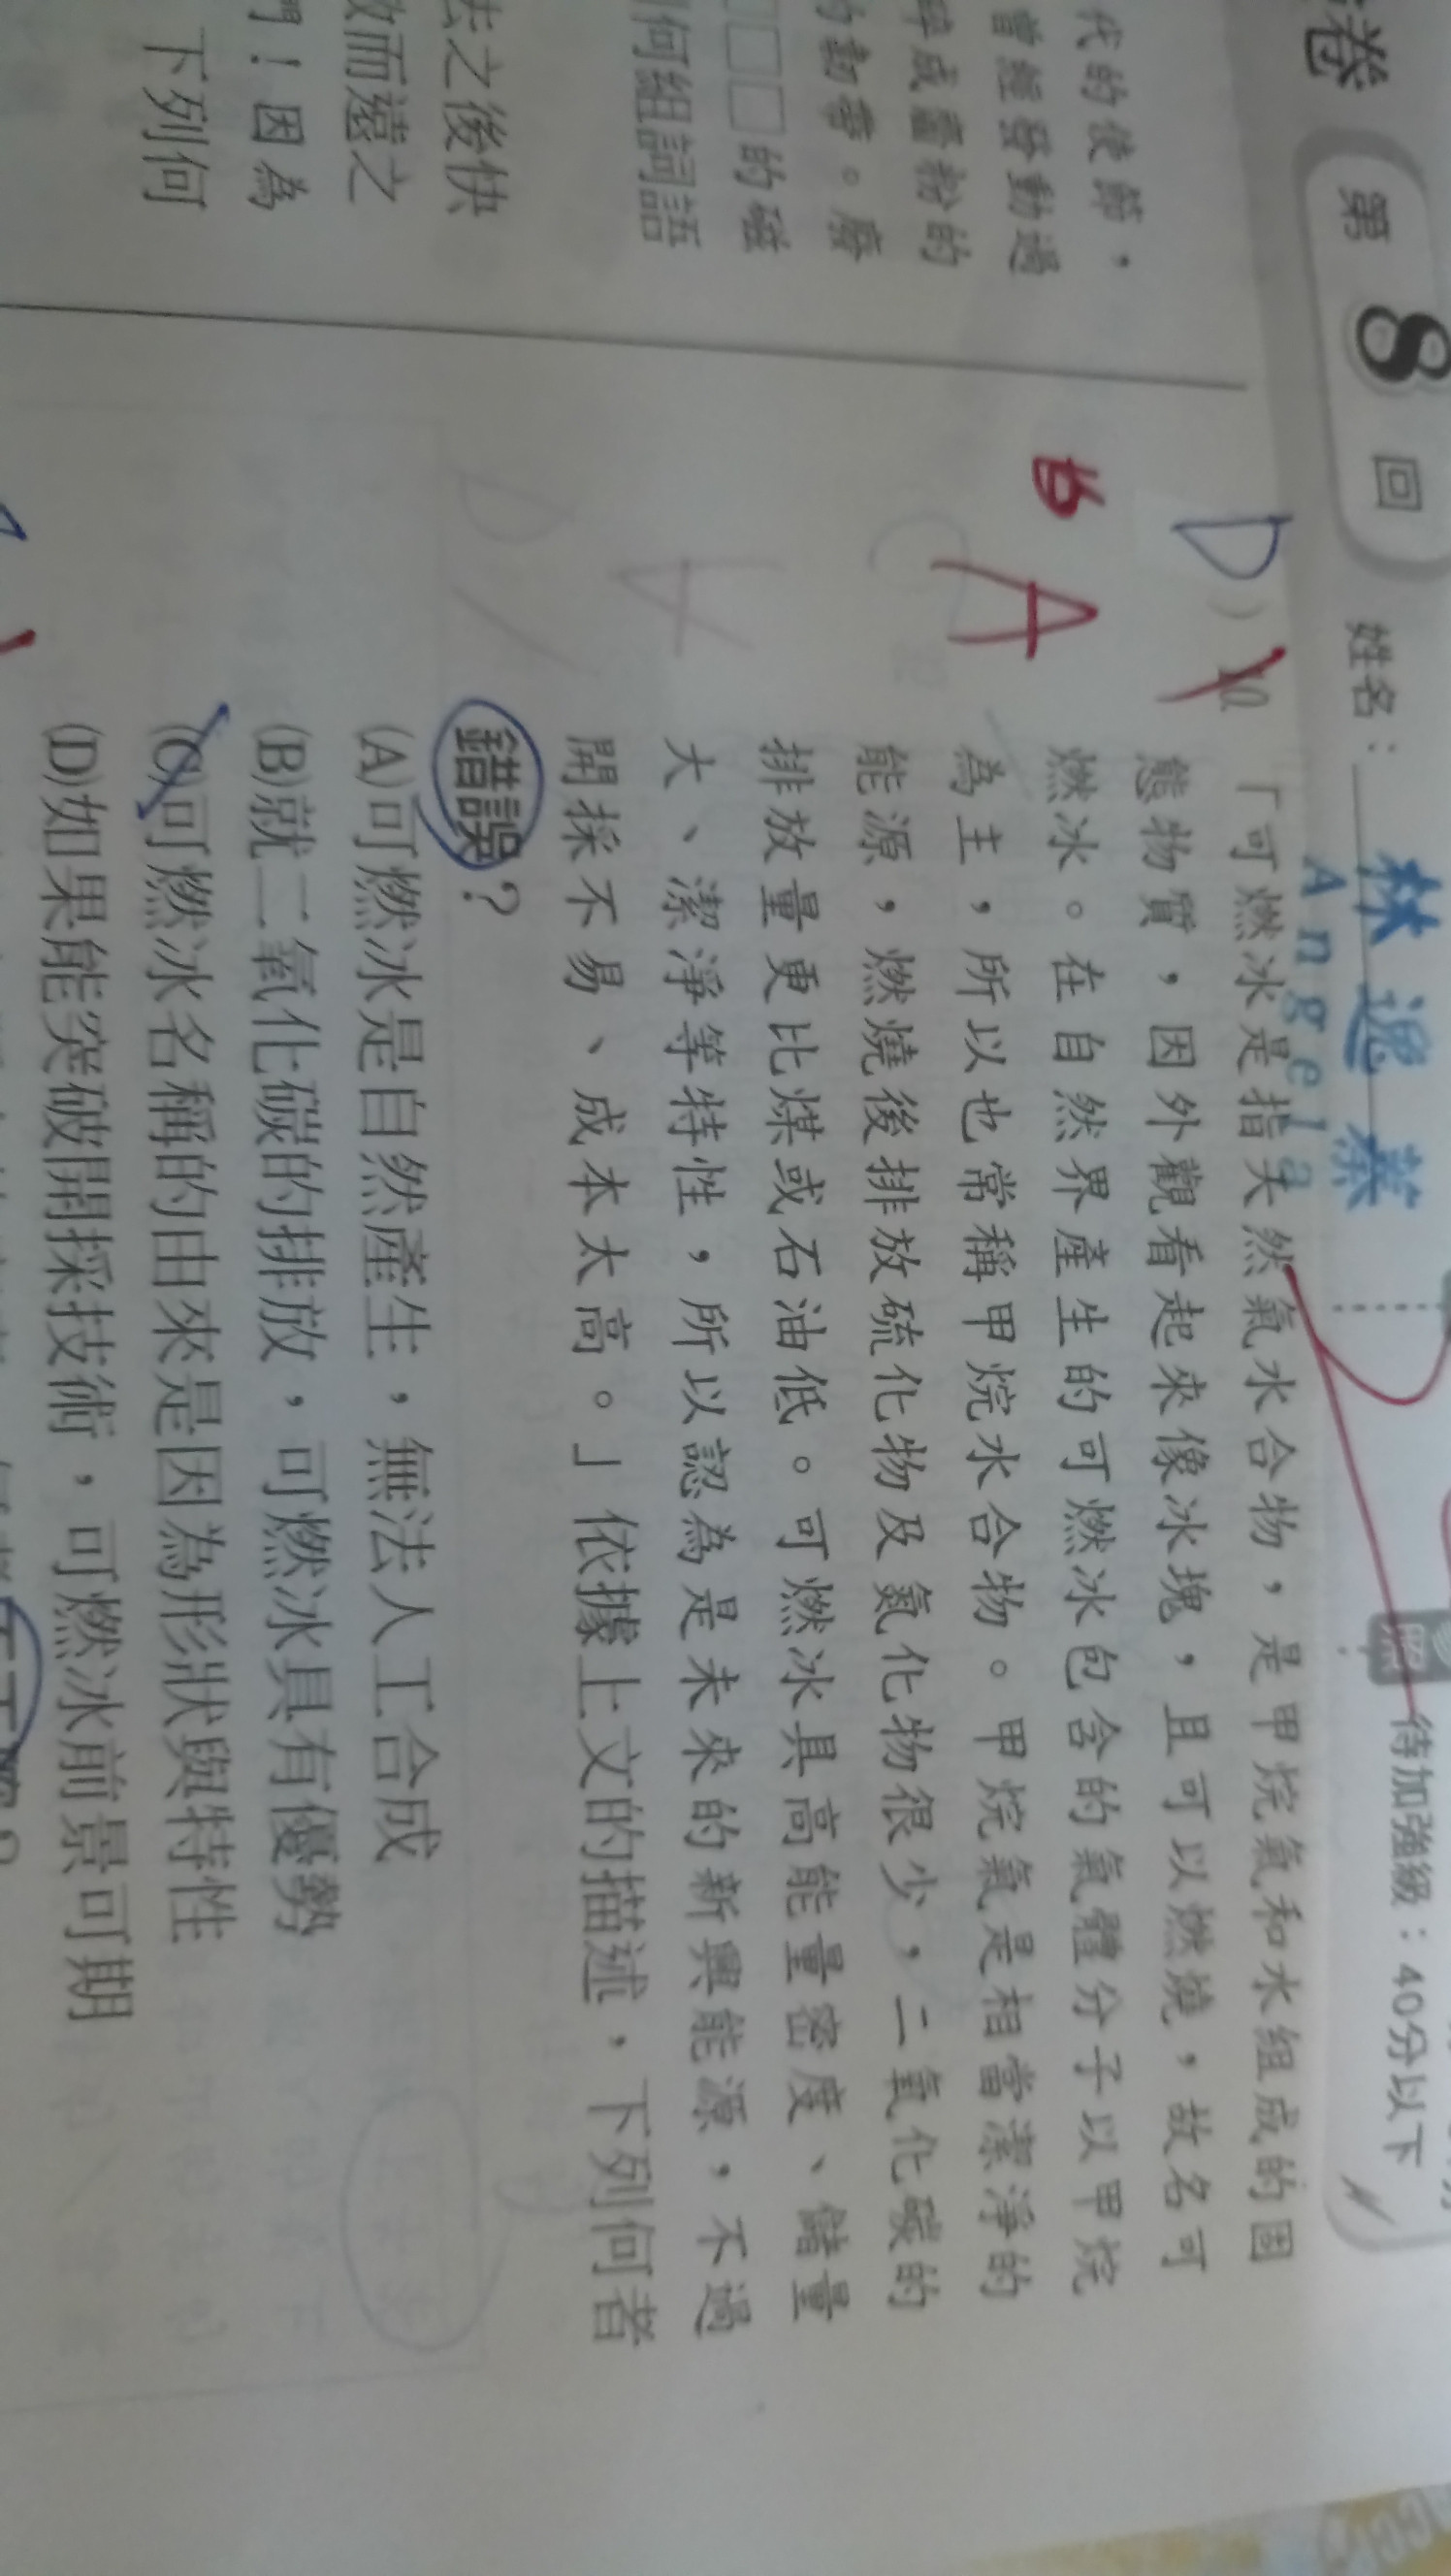 卷 第8回 姓名：林 蓁
Angela
待加強級：40分以下
代的使節，
曾經發動過
成畫粉的
動奮。廢
□□的磁
何組詞語
去之後快
而遠之
門！因為
下列何
D) 10 「可燃冰是指天然氣水合物，是甲烷氣和水組成的固
態物質，因外觀看起來像冰塊，且可以燃燒，故名可
燃冰。在自然界產生的可燃冰包含的氣體分子以甲烷
為主，所以也常稱甲烷水合物。甲烷氣是相當潔淨的
能源，燃燒後排放硫化物及氮化物很少，二氧化碳的
排放量更比煤或石油低。可燃冰具高能量密度、儲量
大、潔淨等特性，所以認為是未來的新興能源，不過
開採不易、成本太高。」依據上文的描述，下列何者
錯誤？
(A)可燃冰是自然產生，無法人工合成
(B)就二氧化碳的排放，可燃冰具有優勢
(C)可燃冰名稱的由來是因為形狀與特性
(D)如果能突破開採技術，可燃冰前景可期
A
D
A